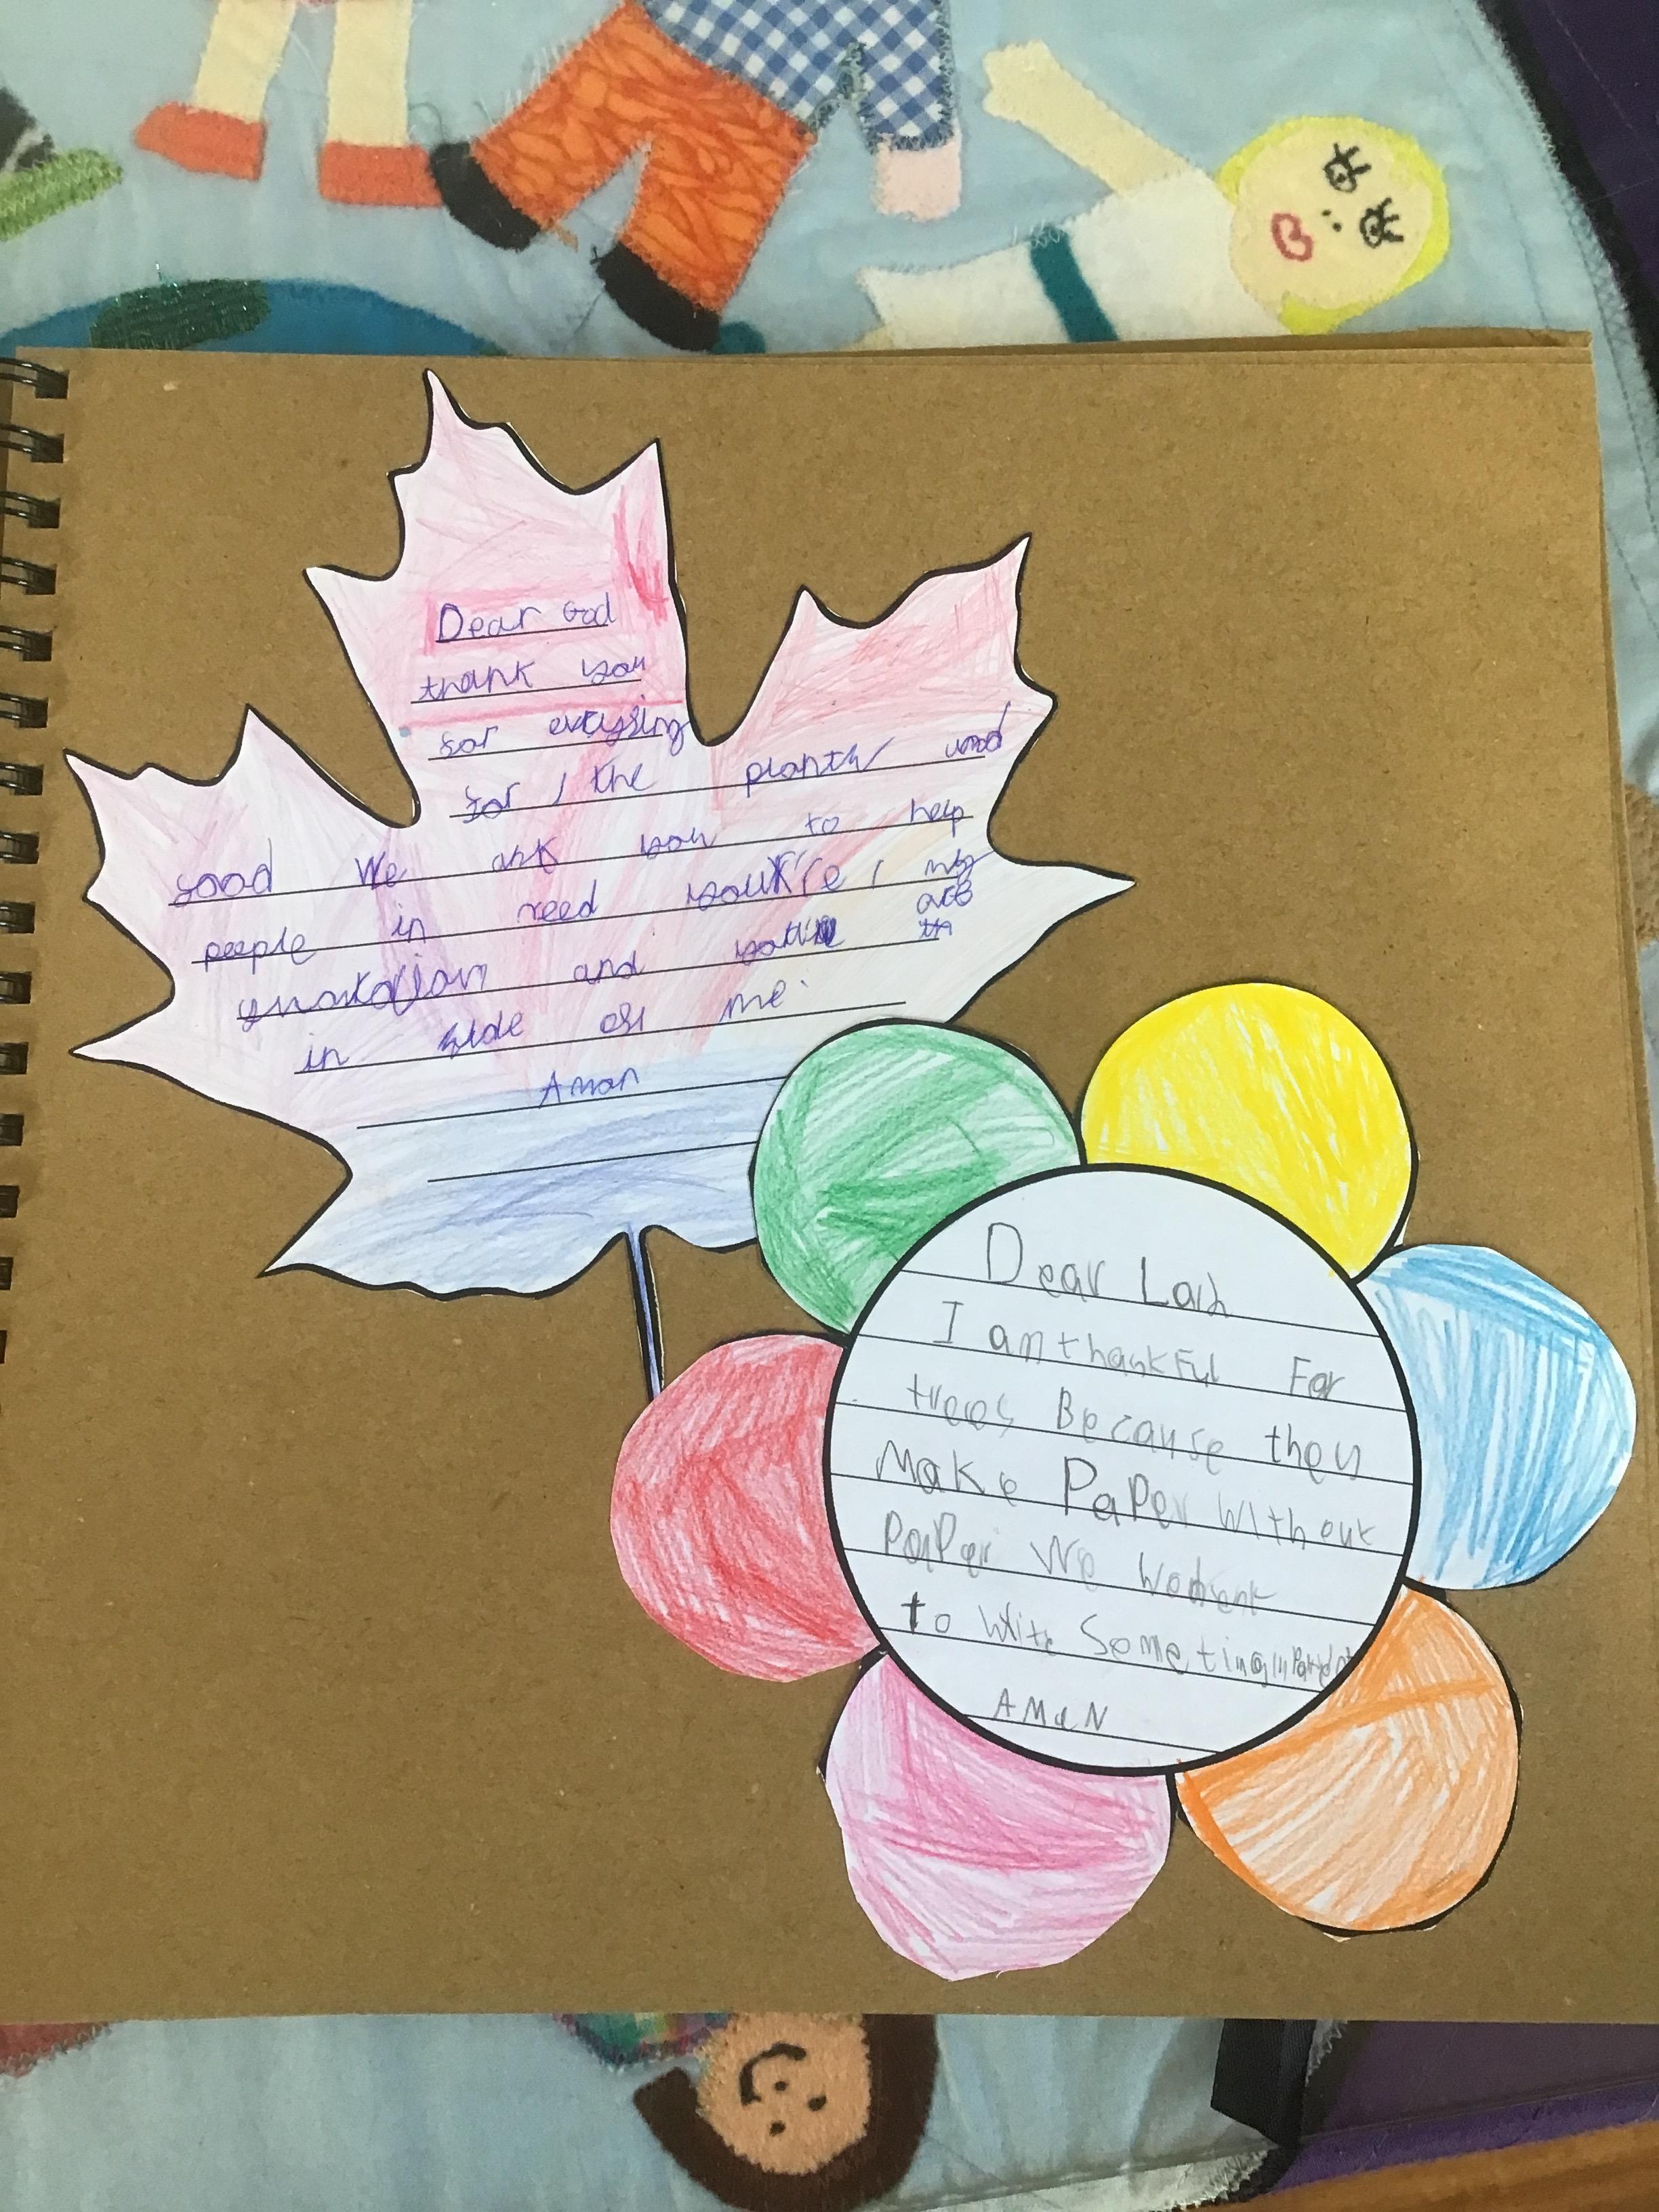 Dear God
thank you
for everysing
for the planth and
good We ask you to help
people in need you're my
and
in side of me.
Aman
Dear Lord
I am thankful For
trees Because they
Make Paper Without
PaPer We
to Write Someting
AMaN